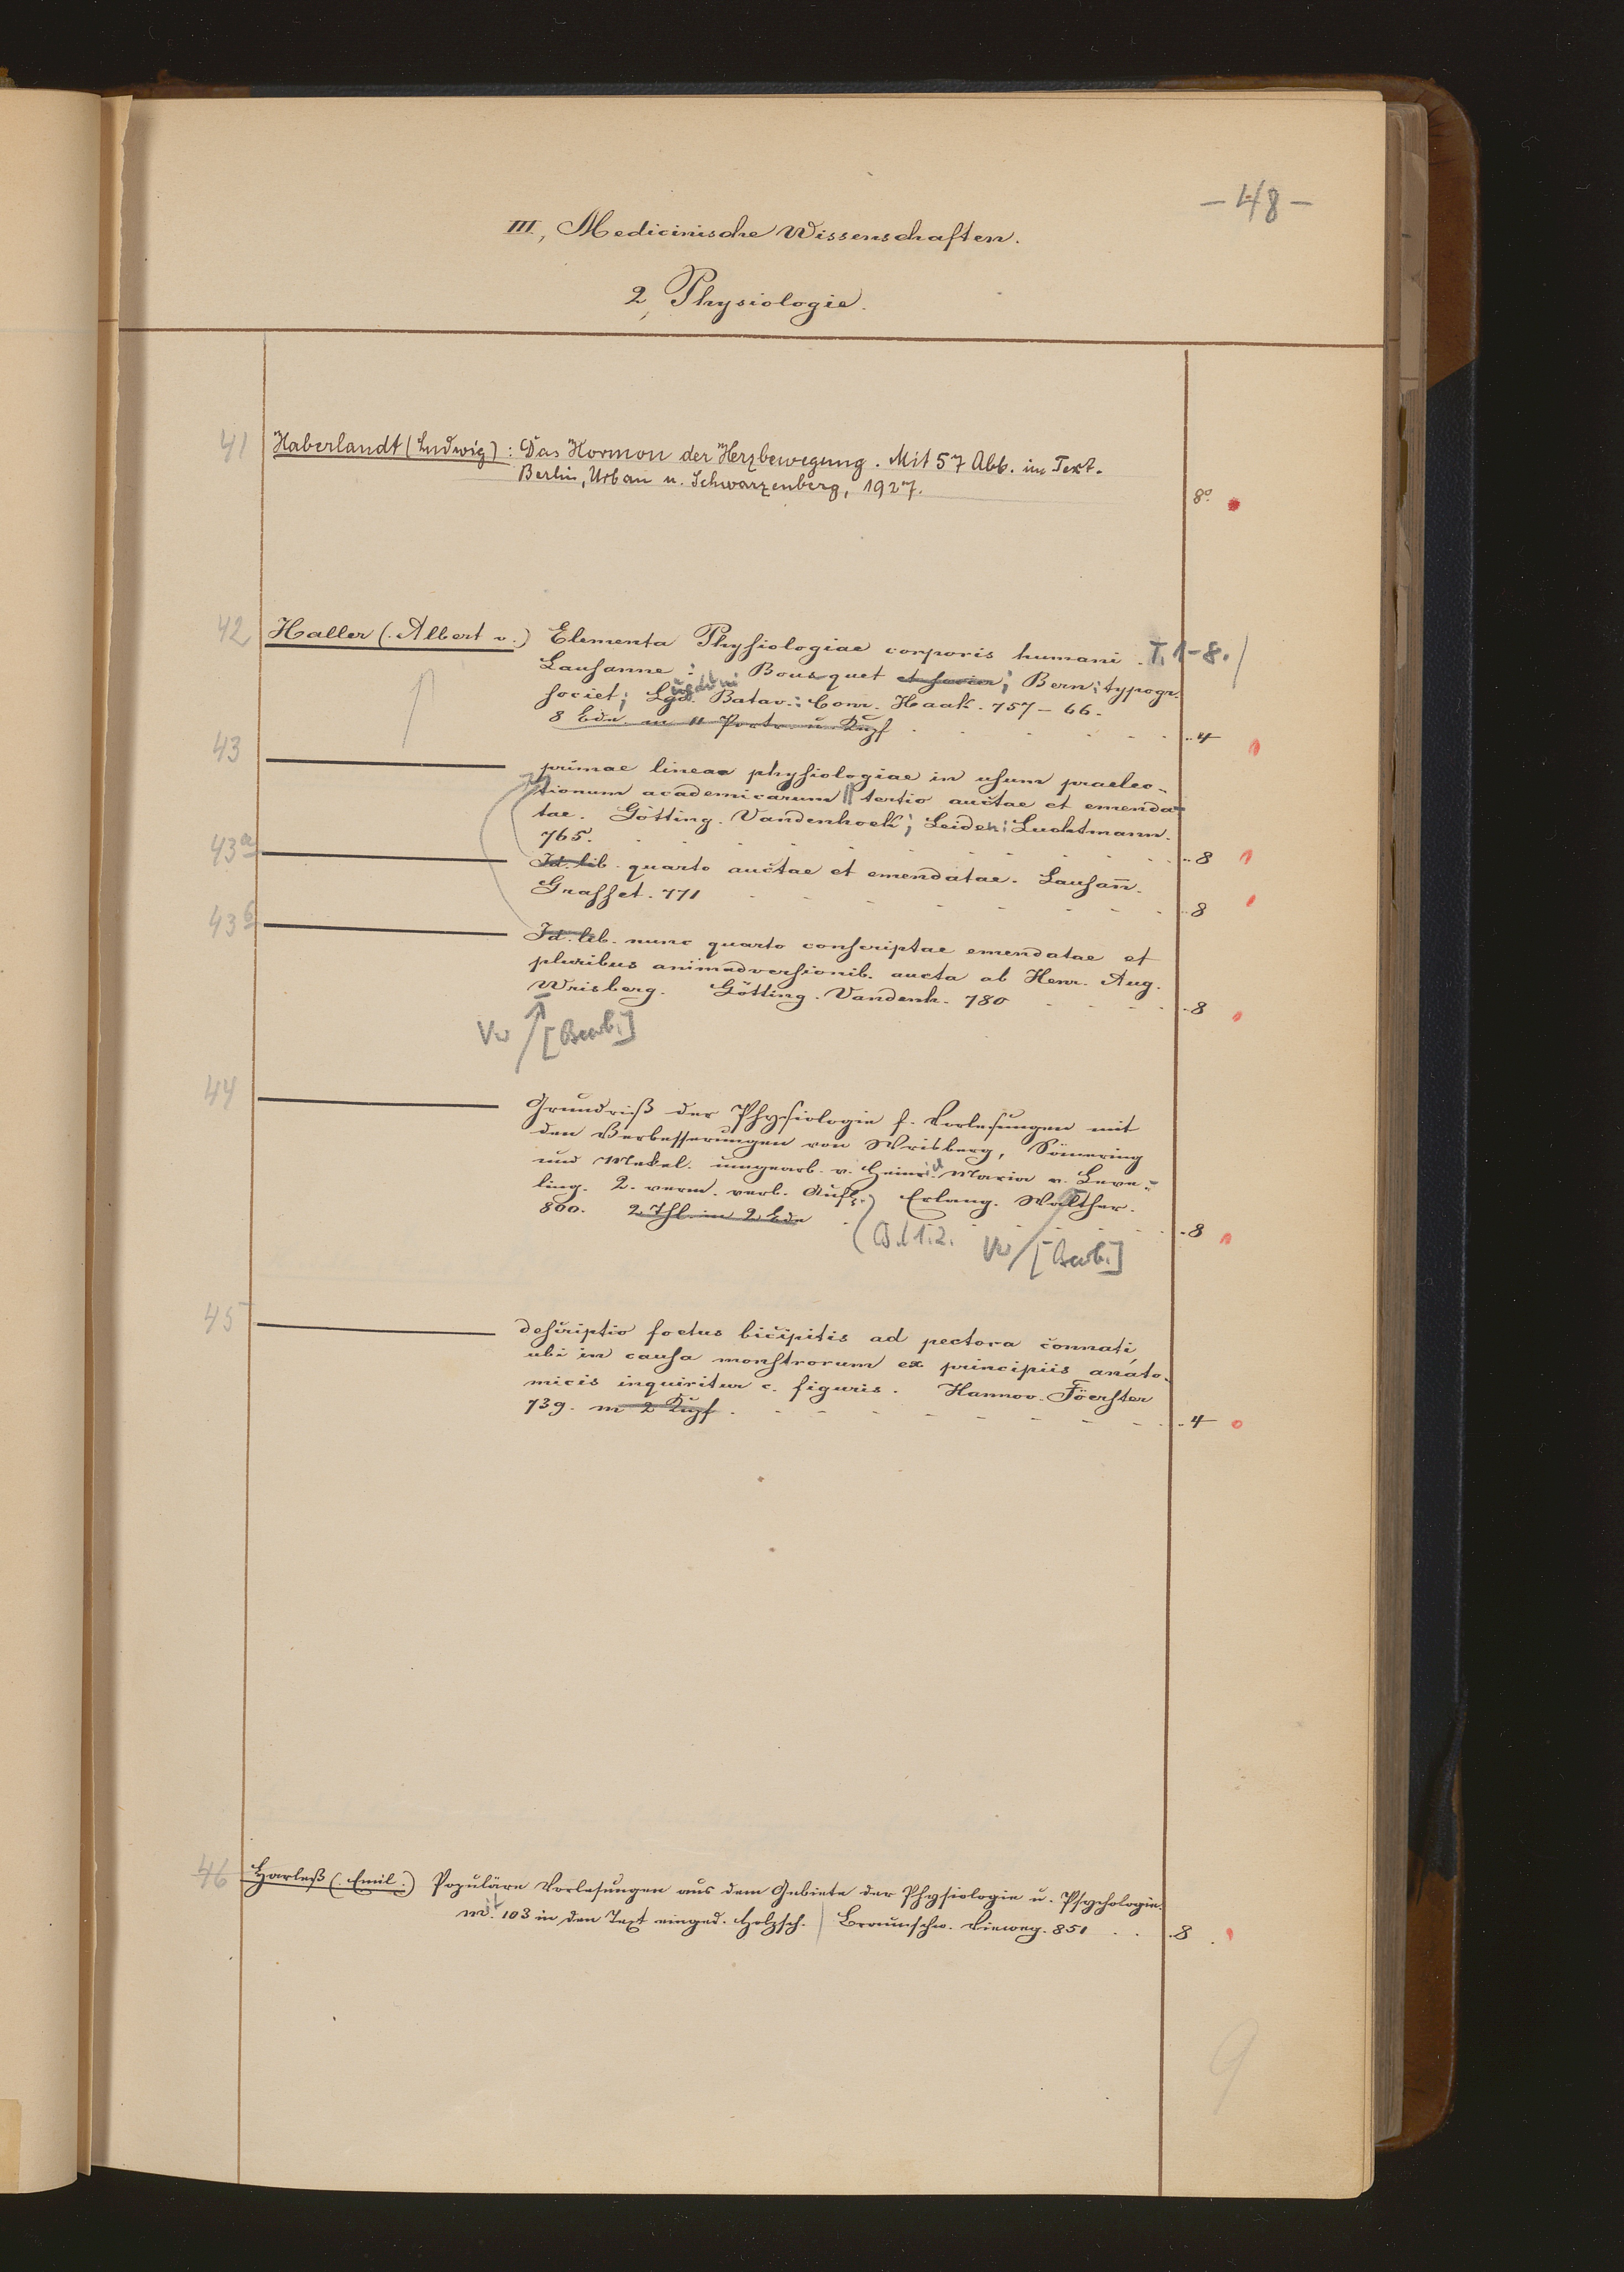 -48-
III, Medicinische Wissenschaften.
2, Physiologie.
41 Haberlandt (Ludwig): Das Hormon der Herzbewegung. Mit 57 Abb. im Text.
Berlin, Urban u. Schwarzenberg, 1927. 8º.
42 Haller (. Albert v.) Elementa Physiologiae corporis humani. T. 1-8. /
Lausanne: Bousquet et socior; Bern: typogr.
societ; Lgd. ugduni Batav.: Conr. Haak. 757-66.
8 Bde. m 11 Portr. u Kupf . . . . . 4
43 primae lineae physiologiae in usum praelec-
tionum academicarum || tertio auctae et emenda-
tae. Götting. Vandenhoek; Leiden: Luchtmann.
765. . . . . . . . 8
43a Id. lib. quarto auctae et emendatae. Lausan̄.
Grasset. 771 . . . . . . 8
43b Id. lib. nunc quarto conscriptae emendatae et
pluribus animadversionib. aucta ab Henr. Aug.
Wrisberg. Götting. Vandenh. 780 . . . 8
Vw / [Bearb.]
44 Grundriß der Physiologie f. Vorlesungen mit
den Verbesserungen von Wrisberg, Sömering
und Mekel. umgearb. v. Heinrich Maria v. Leve-
ling. 2. verm. verb. Aufl. Erlang. Walther.
800. 2 Thl. in 2 Bde . . . . 8
(Bd 1.2. Vw / [Bearb.]
45 descriptio foetus bicipitis ad pectora connati,
ubi in causa monstrorum ex principiis anato-
micis inquiritur c. figuris. Hannov. Föerster
739. m 2 Kupf . . . . . . . 4
46 Harleß (. Emil.) Populäre Vorlesungen aus dem Gebiete der Physiologie u. Psychologie.
mit 103 in den Text einged. Holzsch. | Braunschw. Vieweg. 851 . . 8
9